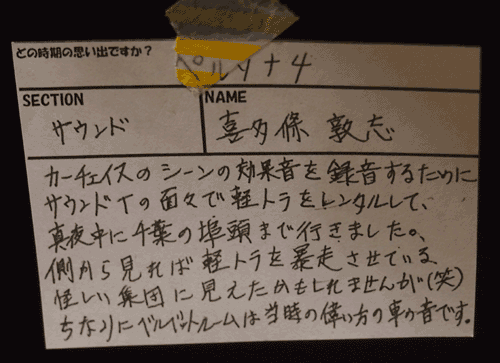 どの時期の思い出ですか?
ペルソナ4
SECTION
NAME
サウンド
喜多條 敦志
カーチェイスのシーンの効果音を録音するために
サウンドTの面々で軽トラをレンタルして、
真夜中に千葉の埠頭まで行きました。
側から見れば軽トラを暴走させている
怪しい集団に見えたかもしれませんが(笑)
ちなみにベルベットルームは当時の偉い方の車の音です。